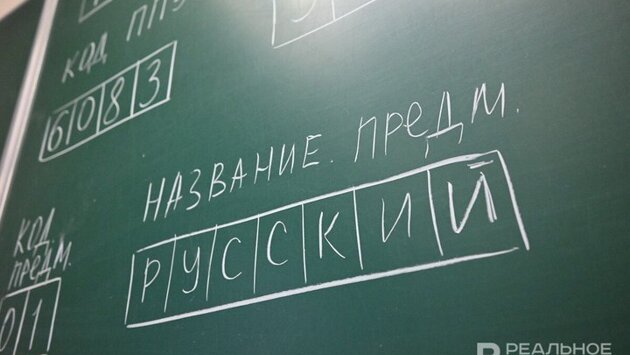 КОД ППЭ
6083
НАЗВАНИЕ. ПРЕДМ.
РУССКИЙ
КОД
ПРЕДМ.
01
РЕАЛЬНОЕ